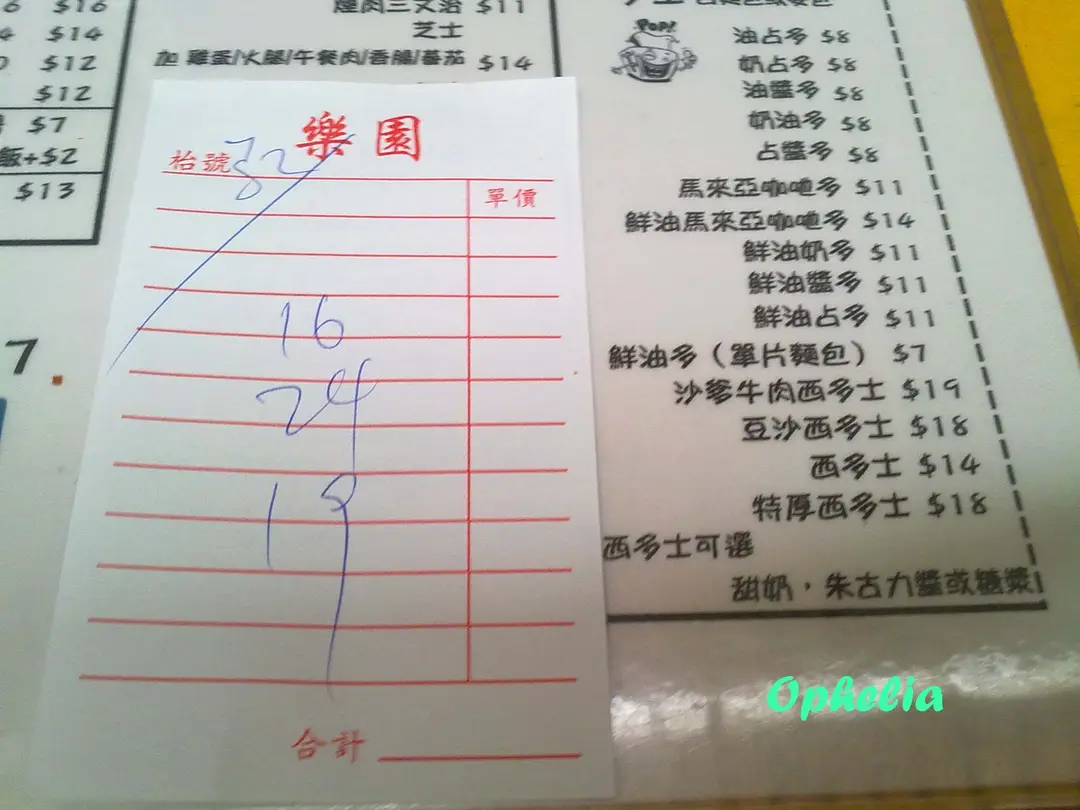 $16
$14
$12
$12
$7
飯+$2
$13
7.
煙肉三文治 $11
芝士
加 雞蛋/火腿/午餐肉/香腸/蕃茄 $14
樂園
枱號
單價
16
24
19
合計
POP!
油占多 $8
奶占多 $8
油醬多 $8
奶油多 $8
占醬多 $8
馬來亞咖吔多 $11
鮮油馬來亞咖吔多 $14
鮮油奶多 $11
鮮油醬多 $11
鮮油占多 $11
鮮油多（單片麵包） $7
沙爹牛肉西多士 $19
豆沙西多士 $18
西多士 $14
特厚西多士 $18
西多士可選
甜奶，朱古力醬或糖漿
Ophelia